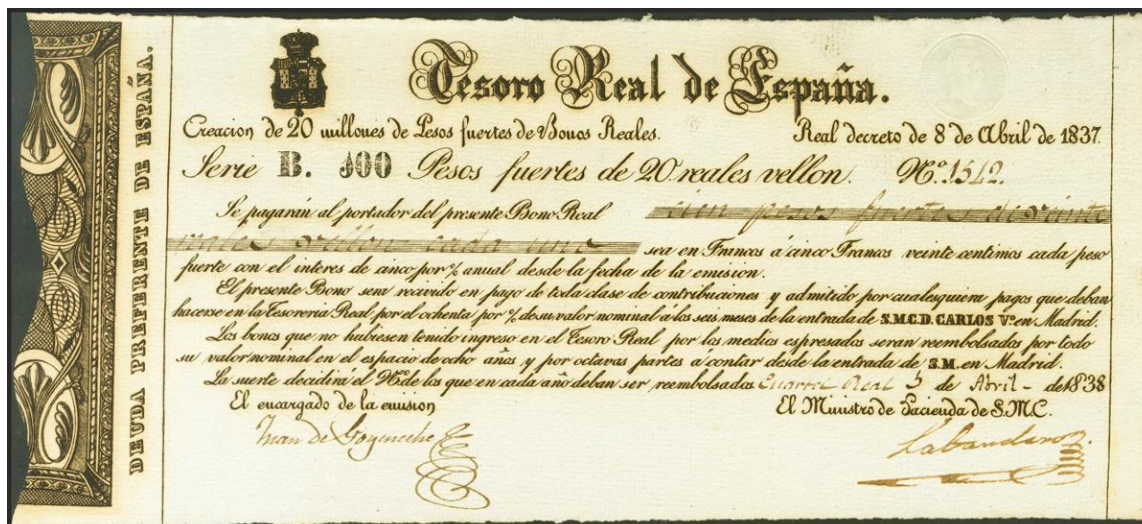 DEUDA PREFERENTE DE ESPAÑA.
Tesoro Real de España.
Creacion de 20 millones de Pesos fuertes de Bonos Reales. Real decreto de 8 de Abril de 1837.
Serie B. 100 Pesos fuertes de 20 reales vellon. Nº 1542.
Se pagarán al portador del presente Bono Real cien pesos fuertes de veinte
reales vellon cada uno sea en Francos á cinco Francos veinte centimos cada peso
fuerte con el interes de cinco por % anual desde la fecha de la emision.
El presente Bono sera recivido en pago de toda clase de contribuciones y admitido por cualesquiera pagos que deban
hacerse en la Tesoreria Real por el ochenta por % de su valor nominal a los seis meses de la entrada de S.M.C.D. CARLOS Vº en Madrid.
Los bonos que no hubiesen tenido ingreso en el Tesoro Real por los medios espresados seran reembolsados por todo
su valor nominal en el espacio de ocho años y por octavas partes á contar desde la entrada de S.M. en Madrid.
La suerte decidirá el Nº de los que en cada año deban ser reembolsados Cuartel Real 5 de Abril - de 1838
El encargado de la emision El Ministro de Hacienda de S.M.C.
Juan de Goyeneche Labandero